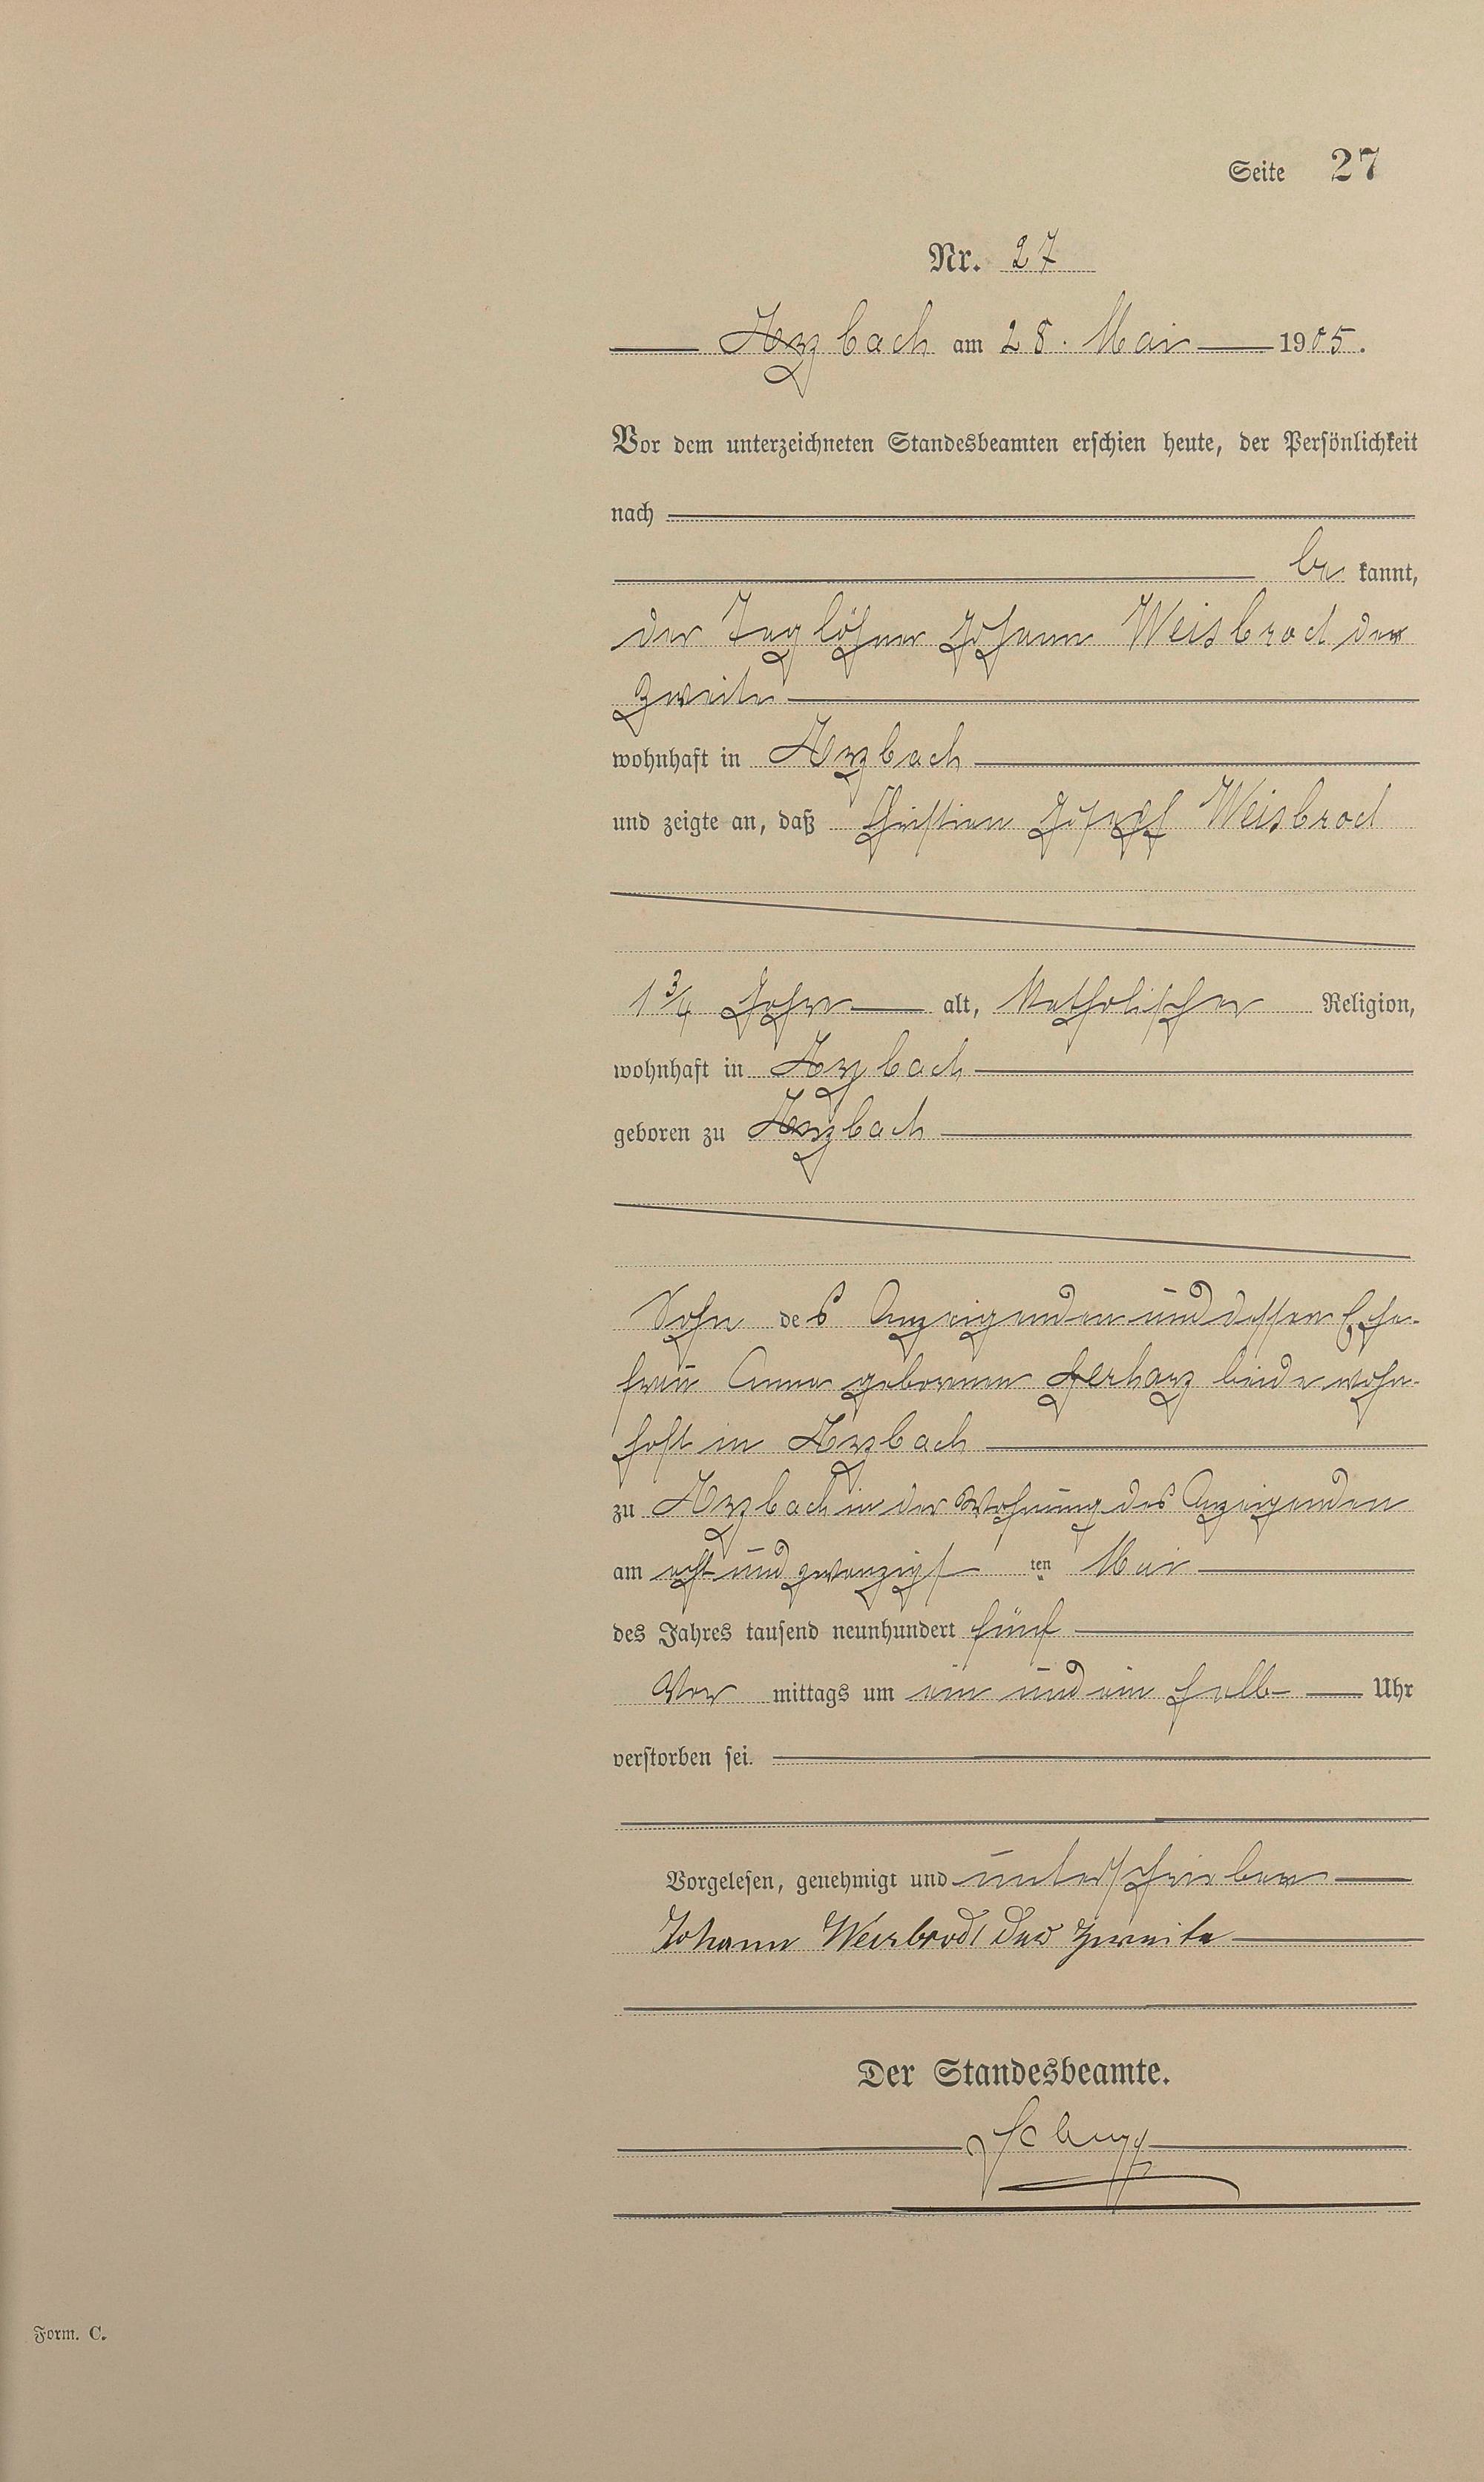 Seite 27
Nr. 27
Arzbach am 28. Mai 1905.
Vor dem unterzeichneten Standesbeamten erschien heute, der Persönlichkeit
nach
be kannt,
der Taglöhner Johann Weisbrod der
Zweite
wohnhaft in Arzbach
und zeigte an, daß Christian Joseph Weisbrod
1 3/4 Jahre alt, Katholischer Religion,
wohnhaft in Arzbach
geboren zu Arzbach
Sohn des Anzeigenden und dessen Ehe-
frau Anna geborenen Herharz beide wohn-
haft in Arzbach
zu Arzbach in der Wohnung des Anzeigenden
am acht und zwanzigsten Mai
des Jahres tausend neunhundert fünf
Vor mittags um ein und ein halb Uhr
verstorben sei.
Vorgelesen, genehmigt und unterschrieben
Johann Weisbrod der Zweite
Der Standesbeamte.
Form. C.